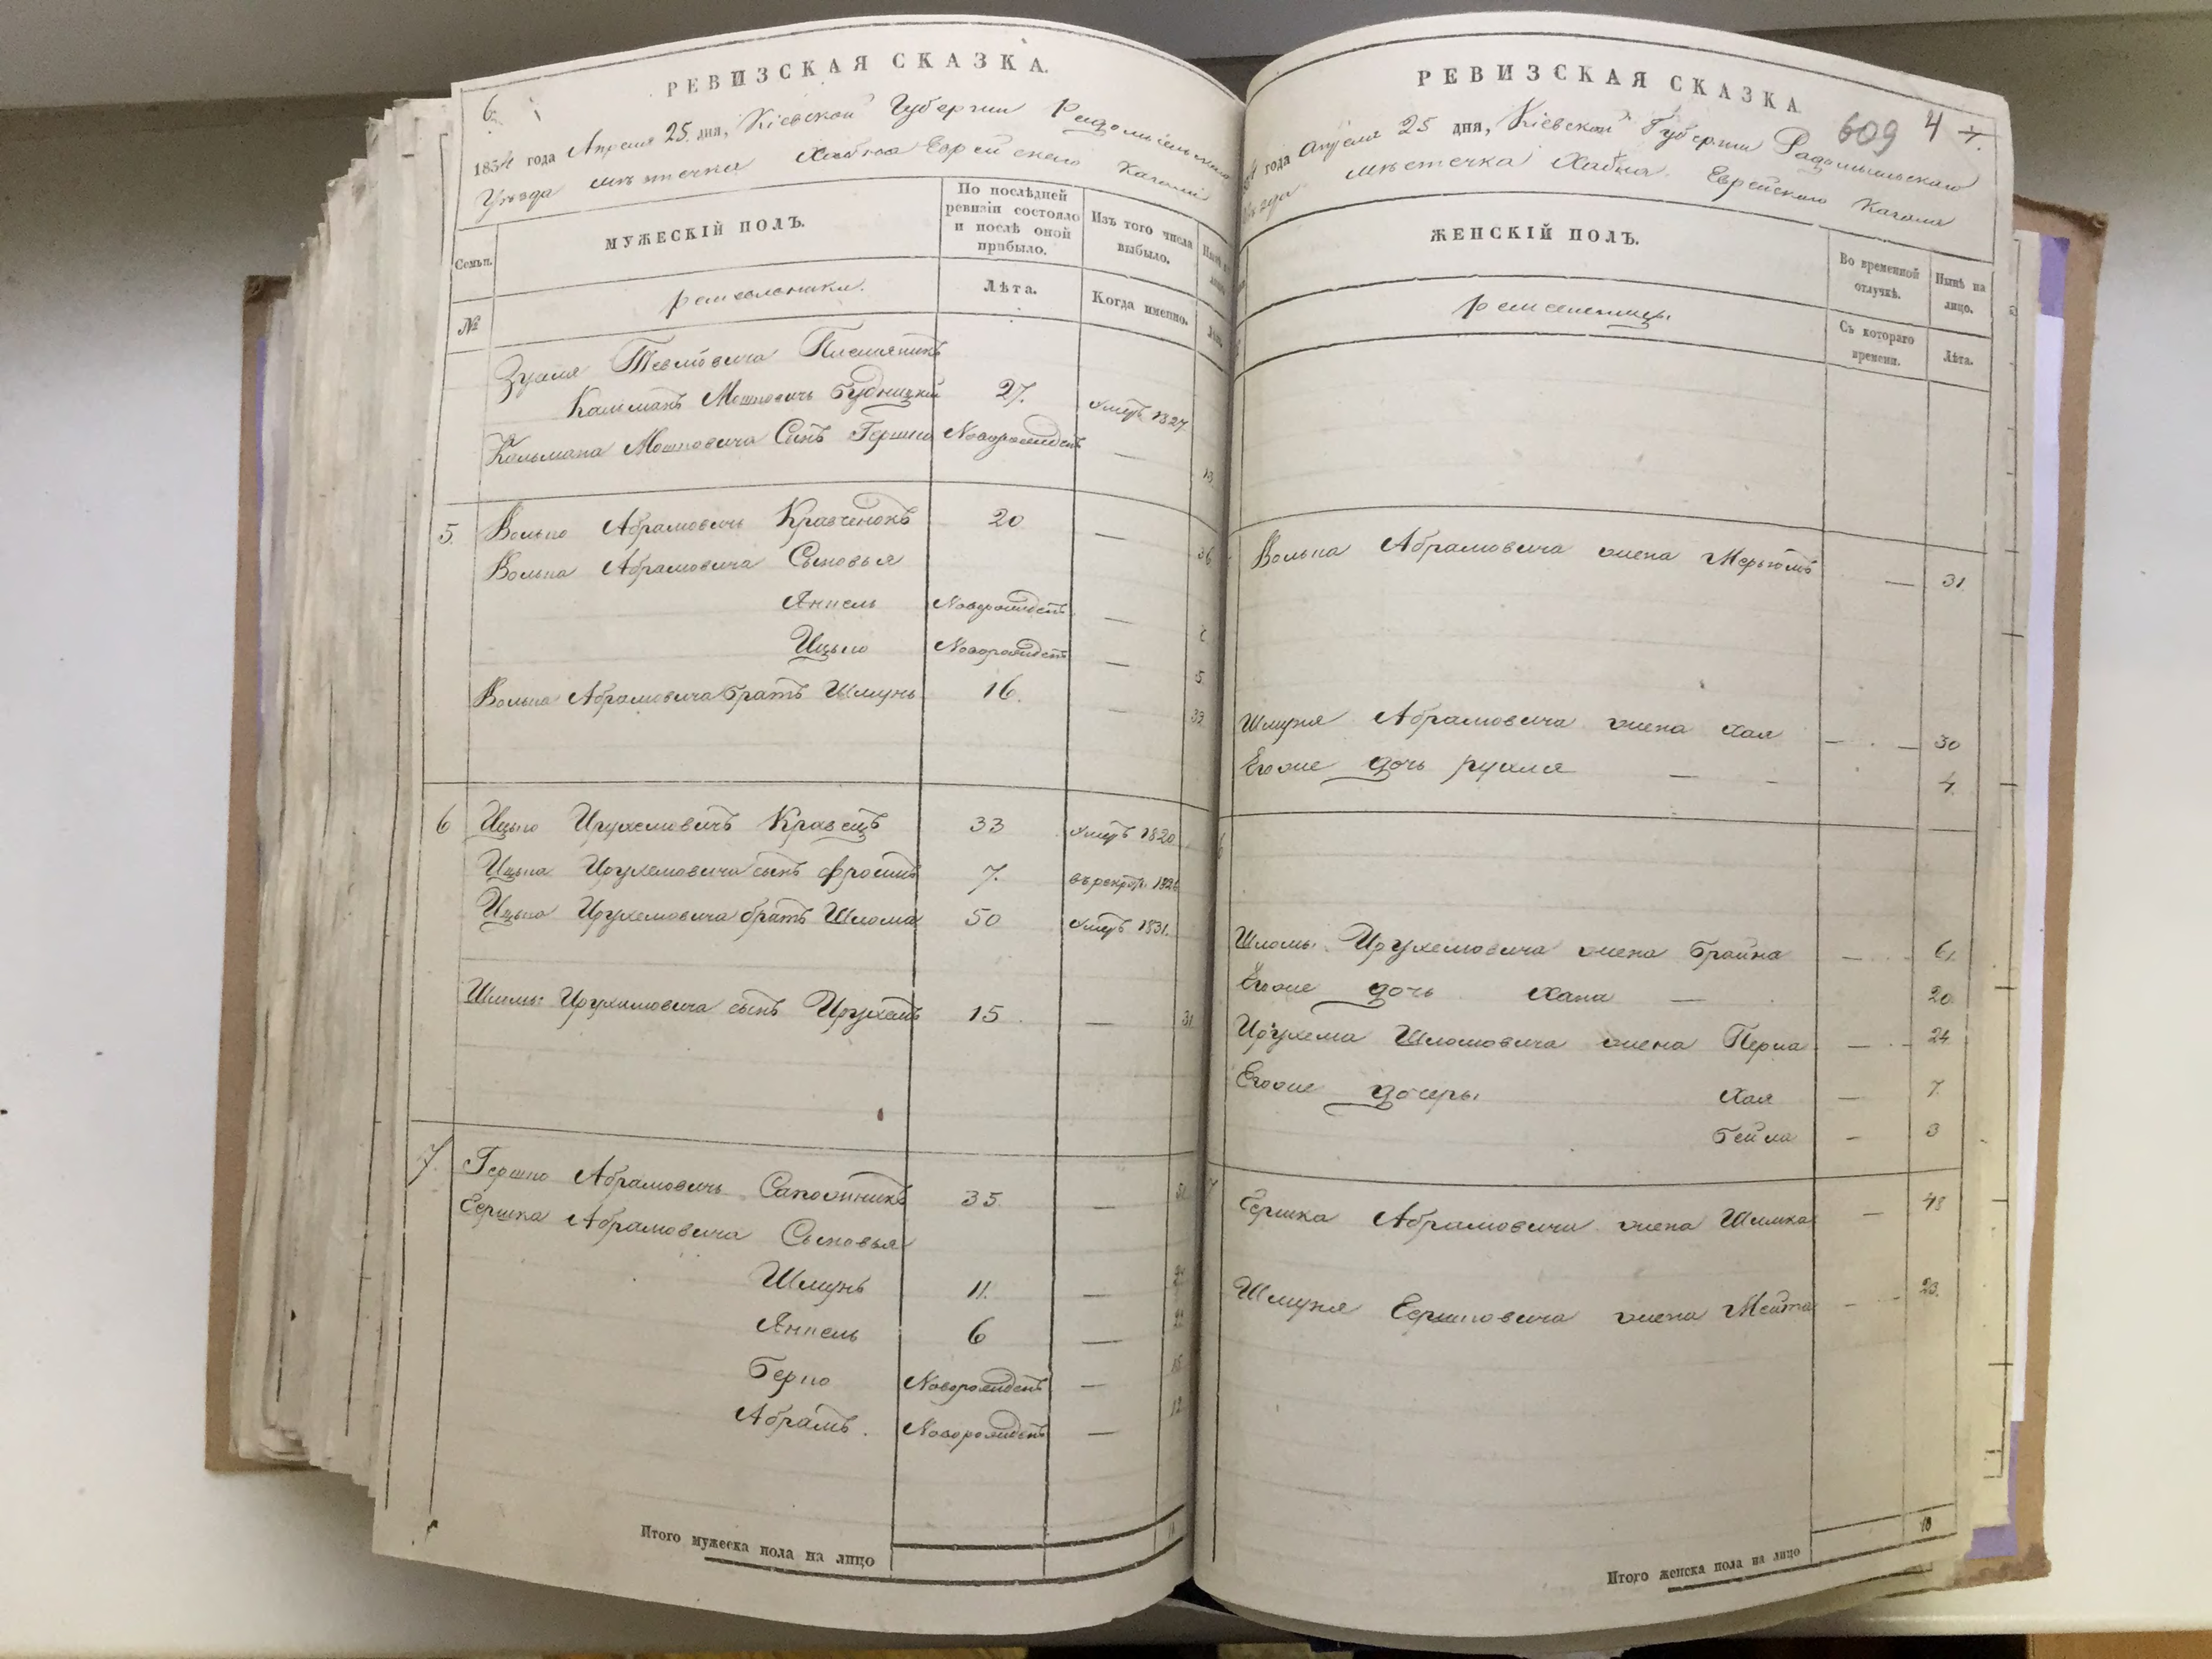 РЕВИЗСКАЯ СКАЗКА.
6.
1834 года Апреля 25. дня, Кіевской Губерніи Радомысльскаго
Уѣзда мѣстечка Хабна Еврейскаго Кагала
Семьи.
МУЖЕСКІЙ ПОЛЪ.
По послѣдней ревизіи состояло и послѣ оной прибыло.
Изъ того числа выбыло.
№
ремесленники.
Лѣта.
Когда именно.
Зуся Племянникъ
Кальманъ Мошковичь 27. умеръ 1827
Кальмана Мошковича Сынъ Гершко Новорожденъ — 13.
5. Волько Абрамовичь Кравченокъ 20 — 36
Волька Абрамовича Сыновья
Янкель Новорожденъ —
Ицько Новорожденъ — 5.
Волька Абрамовича братъ Шмунь 16. — 32
6 Ицько Иерухемовичъ Кравецъ 33 умеръ 1820
Ицька Иерухемовича сынъ Фроимъ 7. въ рекрут. 1828
Ицька Иерухемовича братъ Шлома 50 умеръ 1831.
Шломы Иерухимовича сынъ Иерухемъ 15 — 31
7. Гершко Абрамовичь Сапожникъ 35. —
Гершка Абрамовича Сыновья
Шмунь 11. —
Янкель 6 —
Берко Новорожденъ —
Абрамъ. Новорожденъ — 12
Итого мужеска пола на лицо
РЕВИЗСКАЯ СКАЗКА
609 4
года Апреля 25 дня, Кіевской Губерніи Радомысльскаго
мѣстечка Хабна Еврейскаго Кагала
ЖЕНСКІЙ ПОЛЪ.
Во временной отлучкѣ.
Нынѣ на лицо.
ремесленницы.
Съ котораго времени.
Лѣта.
Волька Абрамовича жена Мерьямъ — 31.
Шмуня Абрамовича жена Хая — 30
Егоже дочь Рухля — 4.
6
Шломы Иерухемовича жена Брайна — 61.
Егоже дочь Хана — 20
Иерухема Шломовича жена Перла — 24
Егоже дочеры Хая — 7.
Бейла — 3
7
Гершка Абрамовича жена Шимка — 48
Шмуня Гершковича жена Мейта — 23.
10
Итого женска пола на лицо